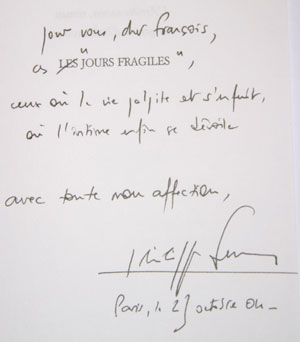 pour vous, cher François,
ces "LES JOURS FRAGILES",
ceux où la vie palpite et s'enfuit,
où l'intime enfin se dévoile
avec toute mon affection,
Paris, le 23 octobre 04_